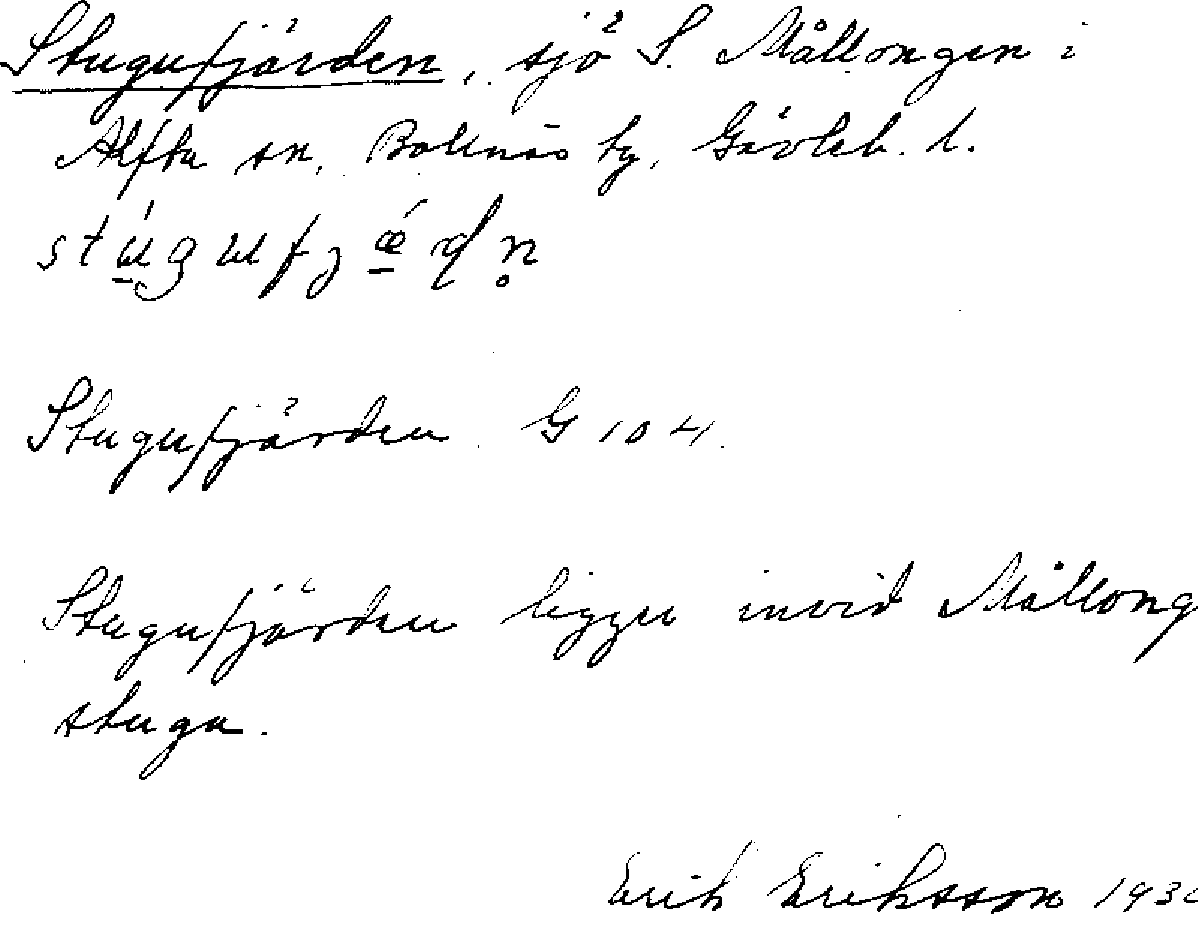 Stugufjärden, sjö S. Mållongen i
Alfta sn, Bollnäs tg, Gävleb. l.
stúgufjǽḍn̥
Stugufjärden G 104.
Stugufjärden ligger invid Mållong
stuga.
Erik Eriksson 193